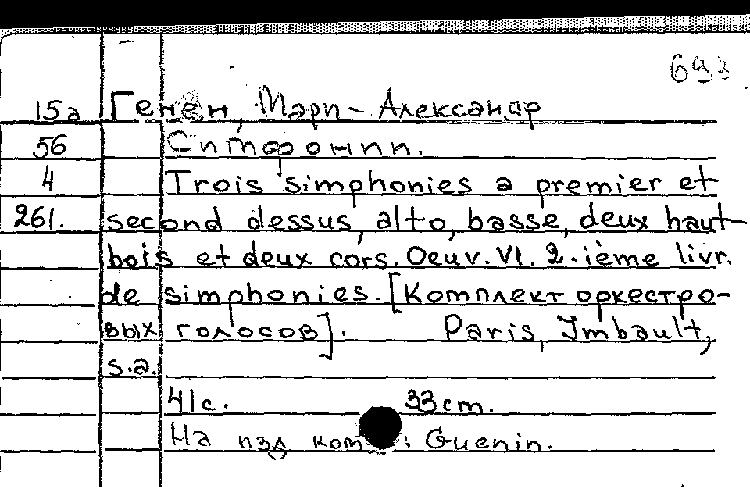 693
15а Генен, Мари-Александр
56 Симфонии.
4 Trois simphonies a premier et
261. second dessus, alto, basse, deux haut-
bois et deux cors. Oeuv. VI. 2-ième livr.
de simphonies. [Комплект оркестро-
вых голосов]. Paris, Imbault,
s.a.
41 с. 33 cm.
На изд. комп.: Guenin.